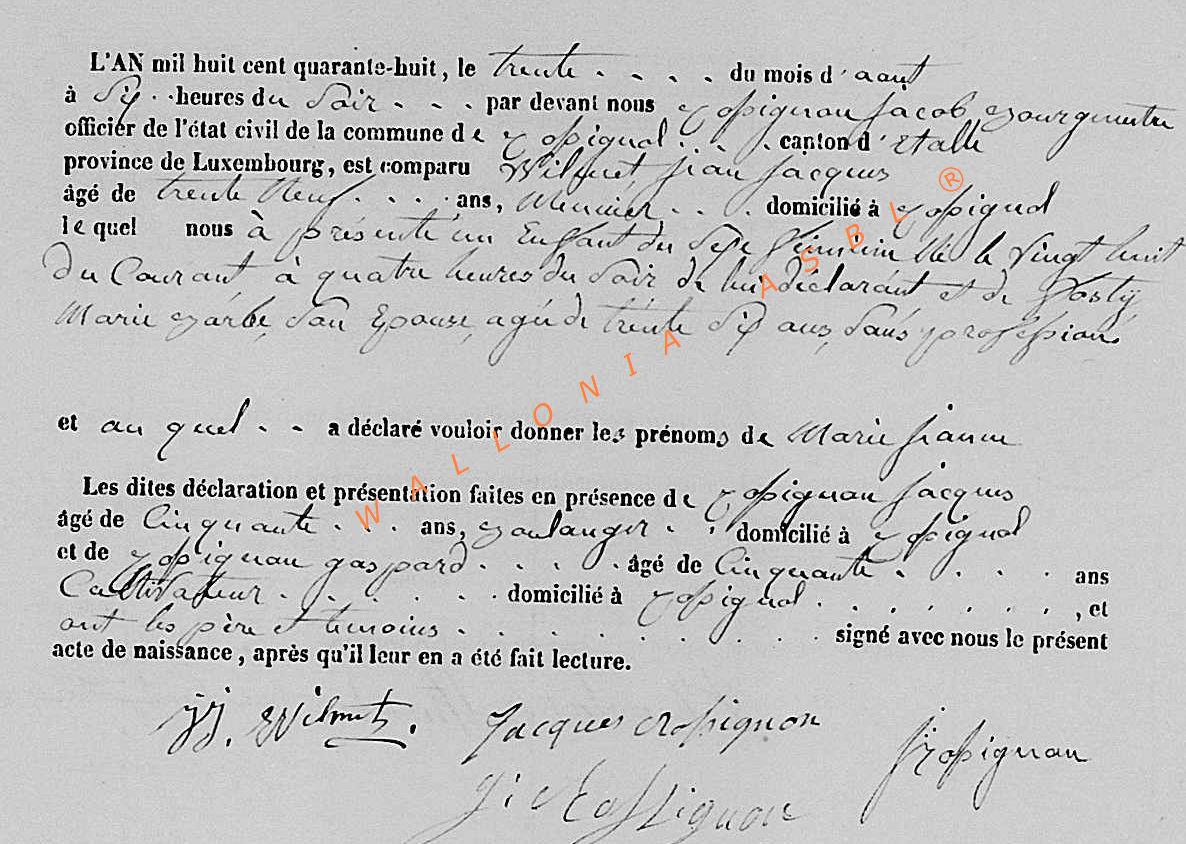 L'AN mil huit cent quarante-huit, le trente . . . . du mois d'aout
à Six . . heures du Soir . . . par devant nous Rossignon Jacob Bourgmestre
officier de l'état civil de la commune de Rossignol . . . . canton d'Etalle
province de Luxembourg, est comparu Wilmet, Jean Jacques
âgé de trente Neuf . . . . ans, Meunier . . . domicilié à Rossignol
le quel nous à présenté un Enfant du Sexe féminin Né le Vingt huit
Du Courant, à quatre heures du Soir de lui déclarant et de
Marie Barbe, Son Epouse, agée de trente Six ans, Sans profession
et au quel . . a déclaré vouloir donner les prénoms de Marie Jeanne
Les dites déclaration et présentation faites en présence de Rossignon Jacques
âgé de Cinquante . . . ans, Boulanger . . domicilié à Rossignol
et de Rossignon gaspard . . . . . âgé de Cinquante . . . . ans
Cultivateur . . . . . . domicilié à Rossignol . . . . . . . , et
ont les père et temoins . . . . . . . . . . signé avec nous le présent
acte de naissance, après qu'il leur en a été fait lecture.
JJ. Wilmet. Jacques Rossignon Rossignon
Rossignon
WALLONIA ASBL ®